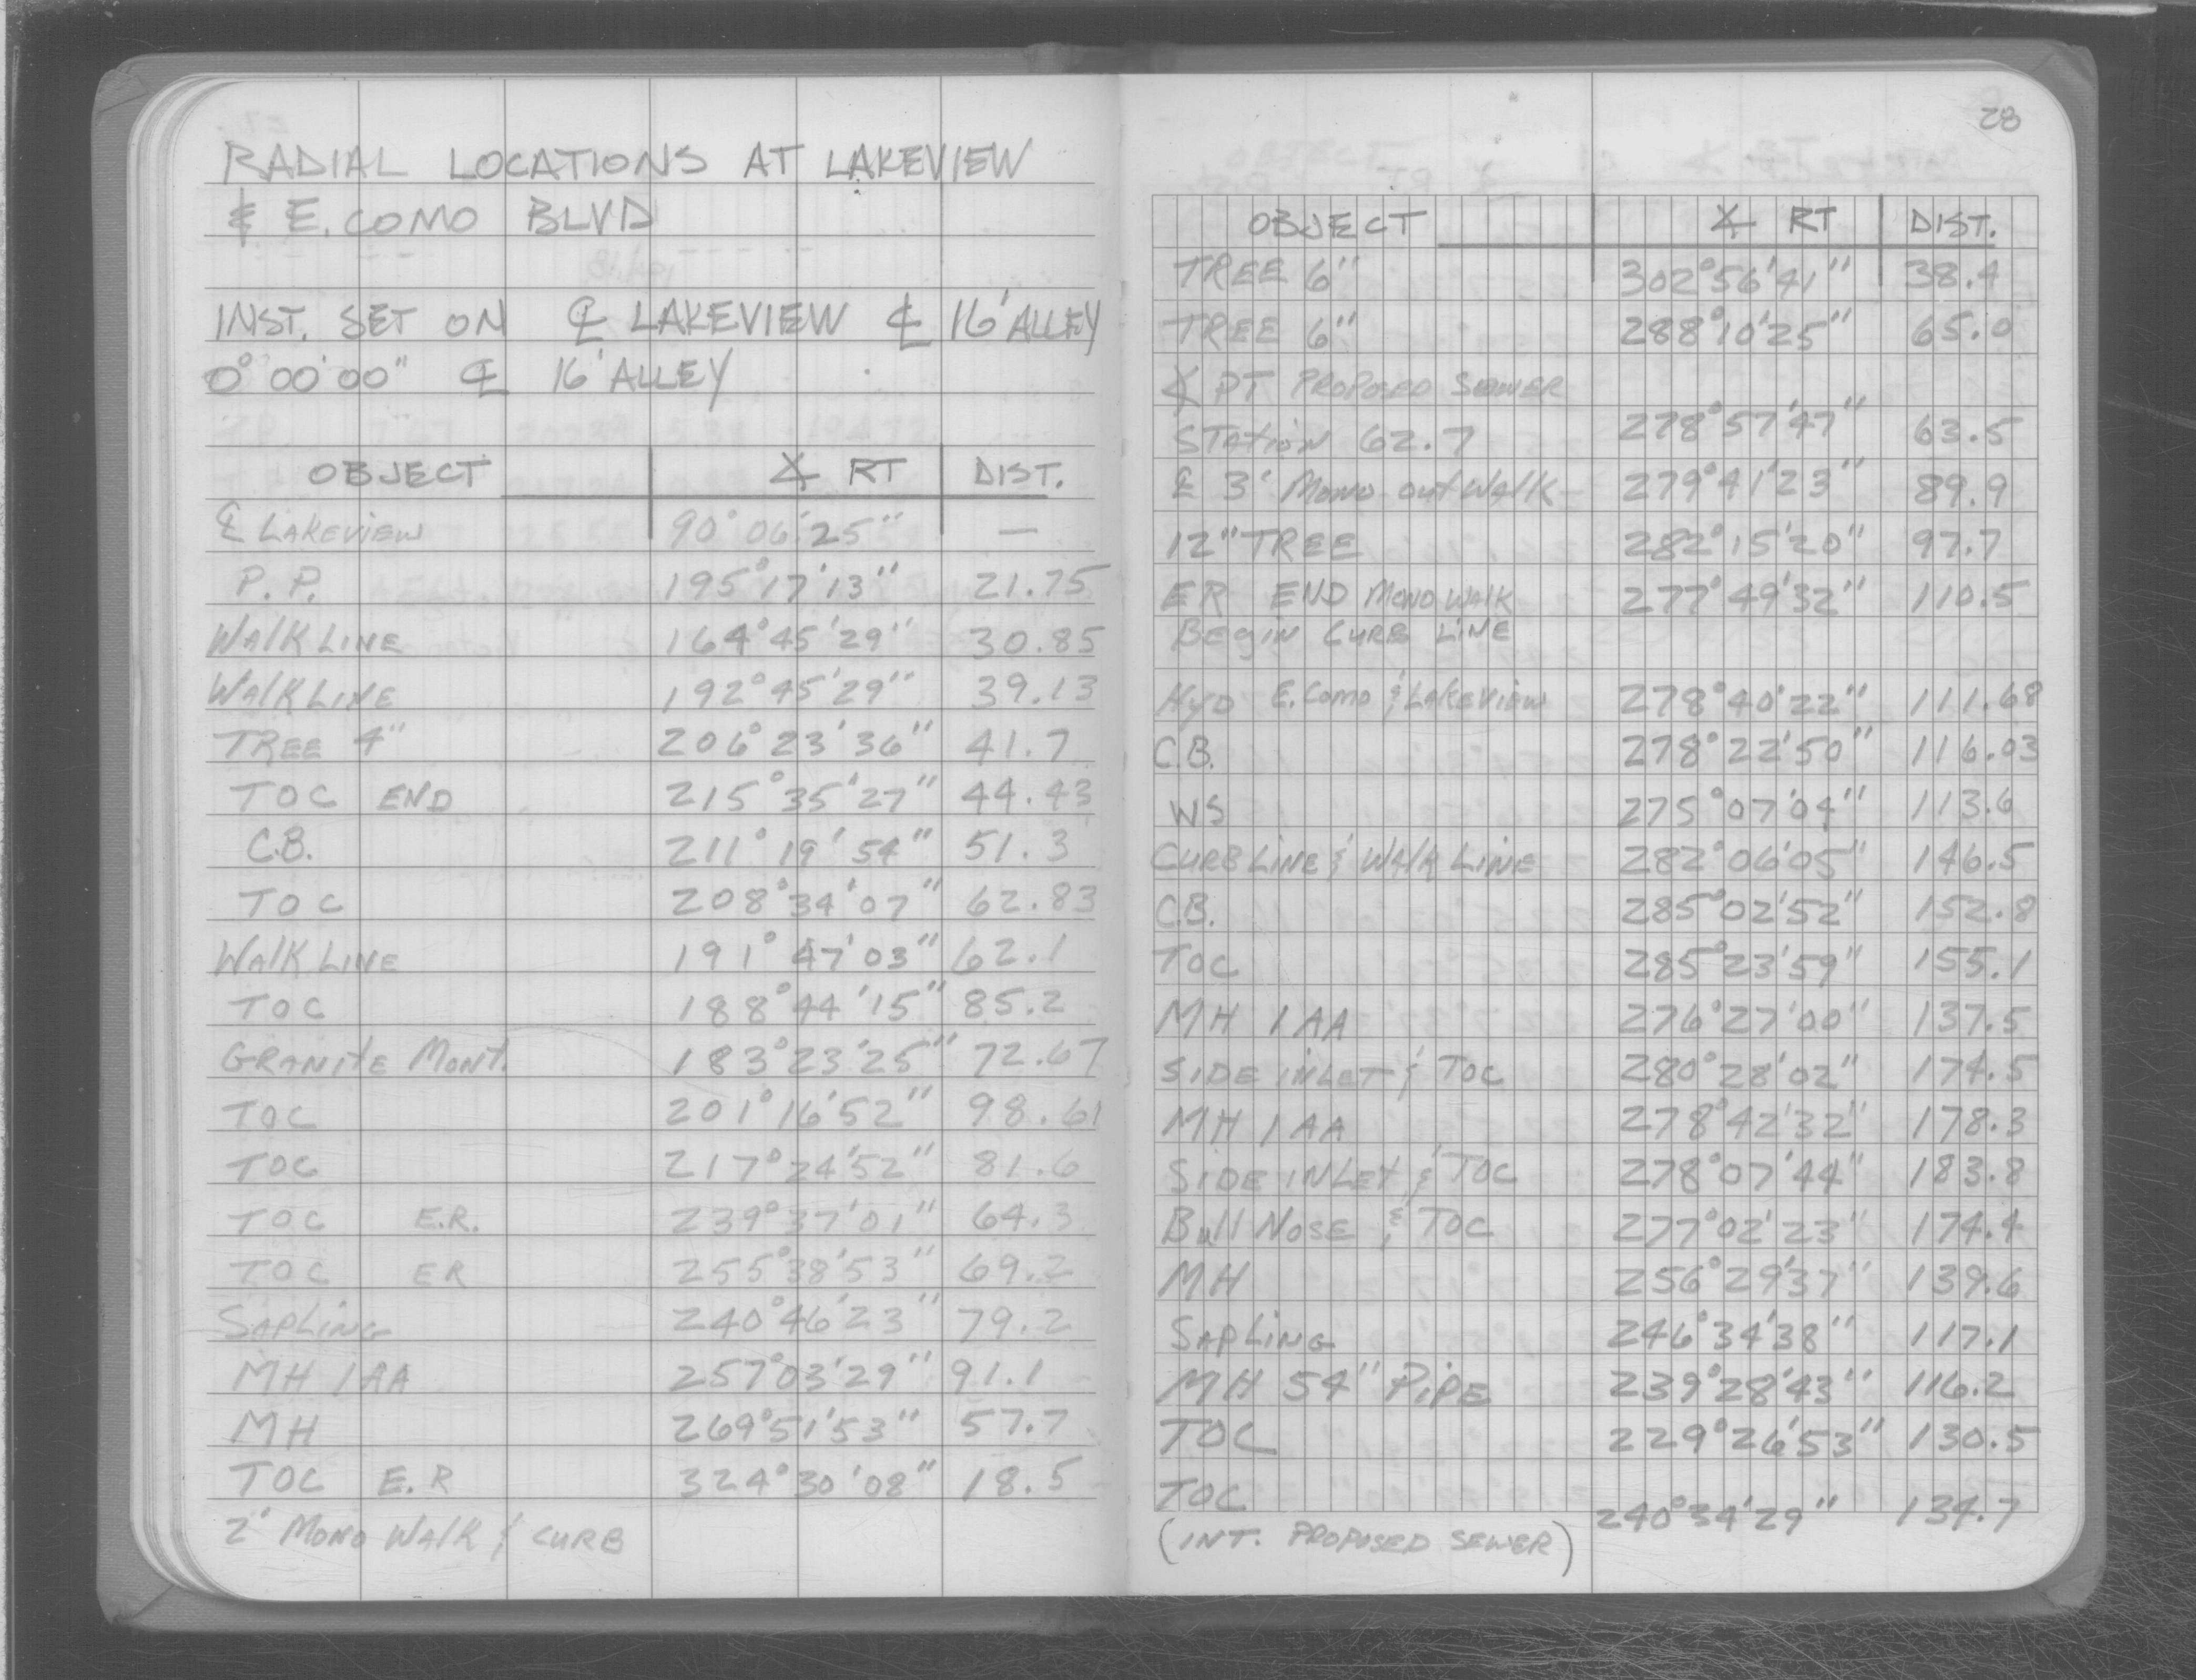 RADIAL LOCATIONS AT LAKEVIEW
& E. COMO BLVD
INST. SET ON ℄ LAKEVIEW ℄ 16' ALLEY
0°00'00" ℄ 16' ALLEY
OBJECT ∡ RT DIST.
℄ LAKEVIEW 90°06'25" —
P.P. 195°17'13" 21.75
WALK LINE 164°45'29" 30.85
WALK LINE 192°45'29" 39.13
TREE 4" 206°23'36" 41.7
TOC END 215°35'27" 44.43
C.B. 211°19'54" 51.3
TOC 208°34'07" 62.83
WALK LINE 191°47'03" 62.1
TOC 188°44'15" 85.2
GRANITE MONT. 183°23'25" 72.67
TOC 201°16'52" 98.61
TOC 217°24'52" 81.6
TOC E.R. 239°37'01" 64.3
TOC ER 255°38'53" 69.2
SAPLING 240°46'23" 79.2
MH 1AA 257°03'29" 91.1
MH 269°51'53" 57.7
TOC E.R 324°30'08" 18.5
2' MONO WALK & CURB
28
OBJECT ∡ RT DIST.
TREE 6" 302°56'41" 38.4
TREE 6" 288°10'25" 65.0
∡ PT PROPOSED SEWER
STATION 62.7 278°57'47" 63.5
℄ 3' MONO OUT WALK 279°41'23" 89.9
12" TREE 282°15'20" 97.7
ER END MONO WALK 277°49'32" 110.5
BEGIN CURB LINE
HYD E. COMO & LAKEVIEW 278°40'22" 111.68
C.B. 278°22'50" 116.03
WS 275°07'04" 113.6
CURB LINE & WALK LINE 282°06'05" 146.5
C.B. 285°02'52" 152.8
TOC 285°23'59" 155.1
MH 1AA 276°27'00" 137.5
SIDE INLET & TOC 280°28'02" 174.5
MH 1AA 278°42'32" 178.3
SIDE INLET & TOC 278°07'44" 183.8
BULL NOSE & TOC 277°02'23" 174.4
MH 256°29'37" 139.6
SAPLING 246°34'38" 117.1
MH 54" PIPE 239°28'43" 116.2
TOC 229°26'53" 130.5
TOC 240°34'29" 134.7
(INT. PROPOSED SEWER)